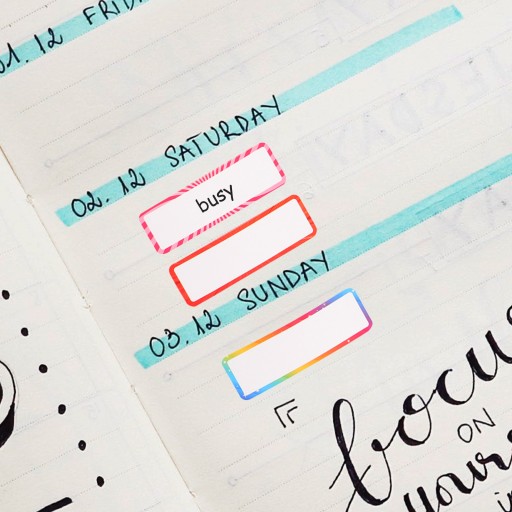 01.12 FRID
02.12 SATURDAY
busy
03.12 SUNDAY
focus
ON